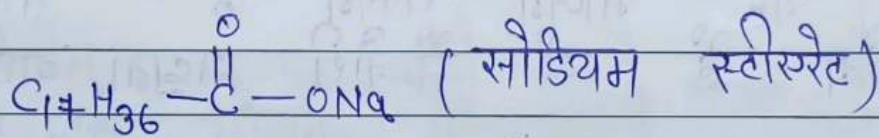 O
C17H36-C-ONa (सोडियम स्टीएरेट)